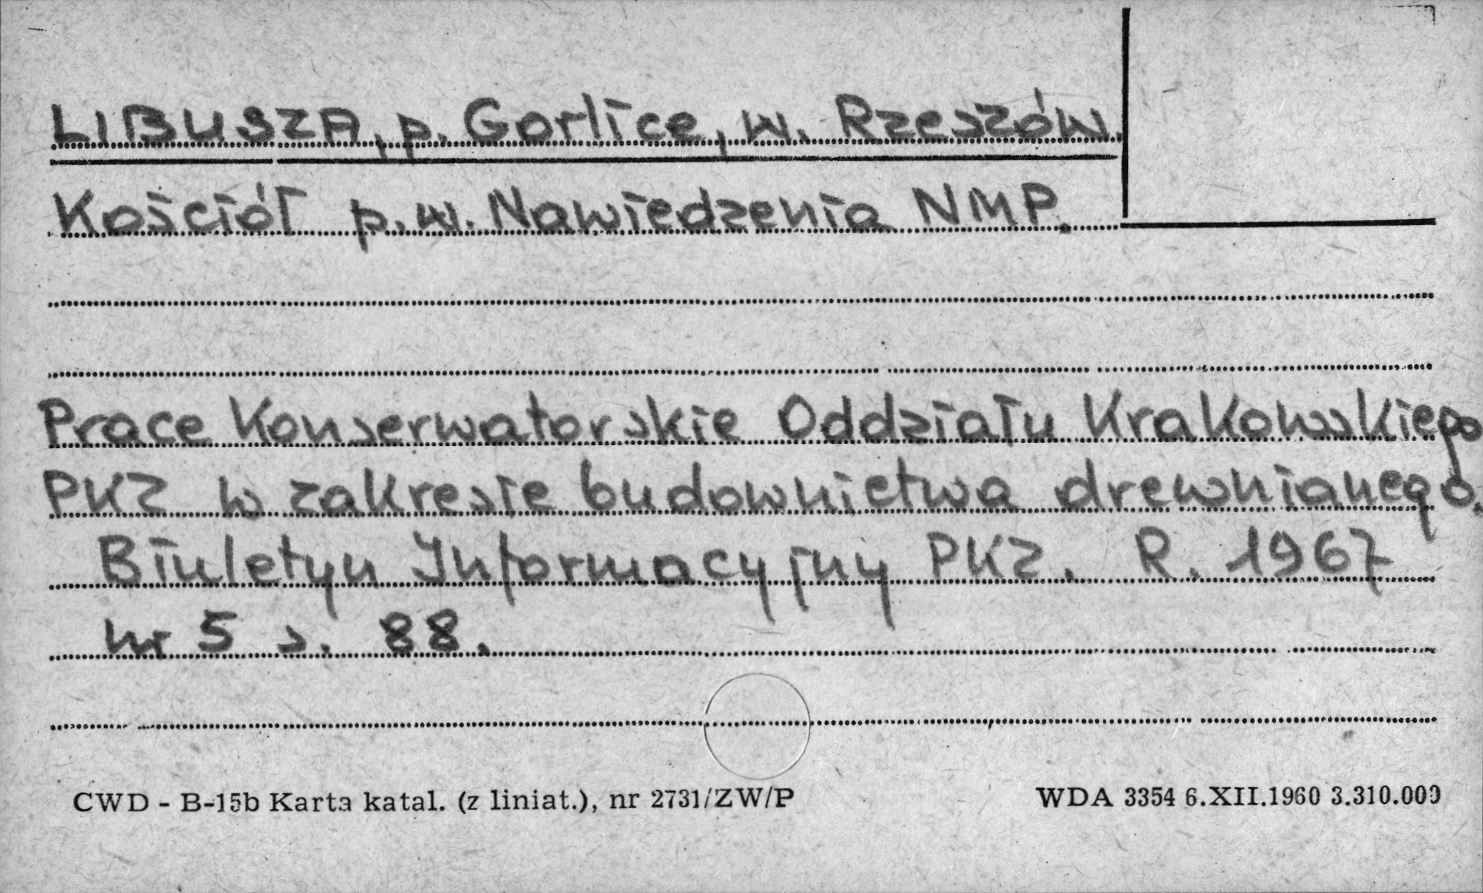 LIBUSZA, p. Gorlice, w. Rzeszów.
Kościół p.w. Nawiedzenia NMP.
Prace Konserwatorskie Oddziału Krakowskiego
PKZ w zakresie budownictwa drewnianego.
Biuletyn Informacyjny PKZ. R. 1967
nr 5 s. 88.
CWD - B-15b Karta katal. (z liniat.), nr 2731/ZW/P WDA 3354 6.XII.1960 3.310.000